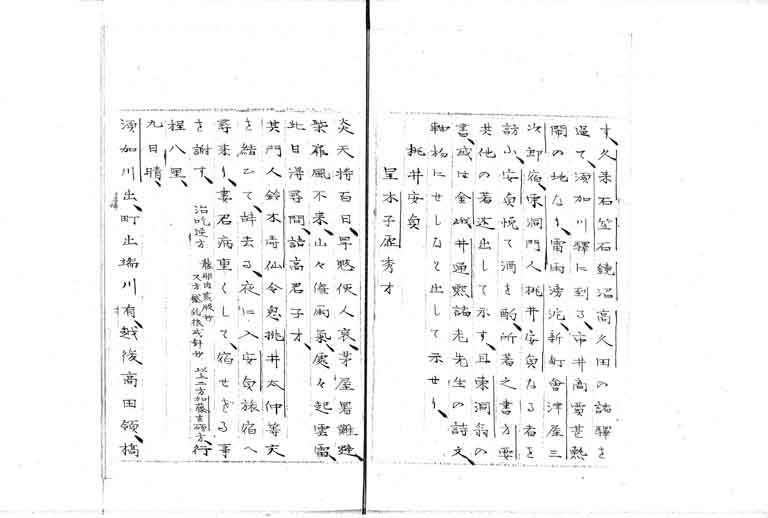 す、久来石笠石鏡沼高久田の諸驛を
過て、須加川驛に到る、市井商賣甚熱
閙の地なり、雷雨滂沱、新町會津屋三
次郎宿、東洞門人桃井安貞なる者を
訪ふ、安貞悦て酒を酌、所著之書方要
其他の著述出して示す、且東洞翁の
書、或は金城井通熙諸老先生の詩文、
軸物にせしなと出して示せり、
桃井安貞
呈木子虚秀才
炎天將百日、旱愁使人哀、茅屋暑難避、
柴扉風不來、山々催雨氣、處々起雲雷、
北日淂尋問、詰高君子才、
其門人鈴木寿仙令息桃井太仲等交
を結ひて、辞去る、夜に入安貞旅宿へ
尋來り、妻君病重くして、宿せざる事
を謝す、
治吃逆方
以上二方加藤玄碩方、行
程八里、
九日晴、
須加川出、町出端川有、越後高田領、橋